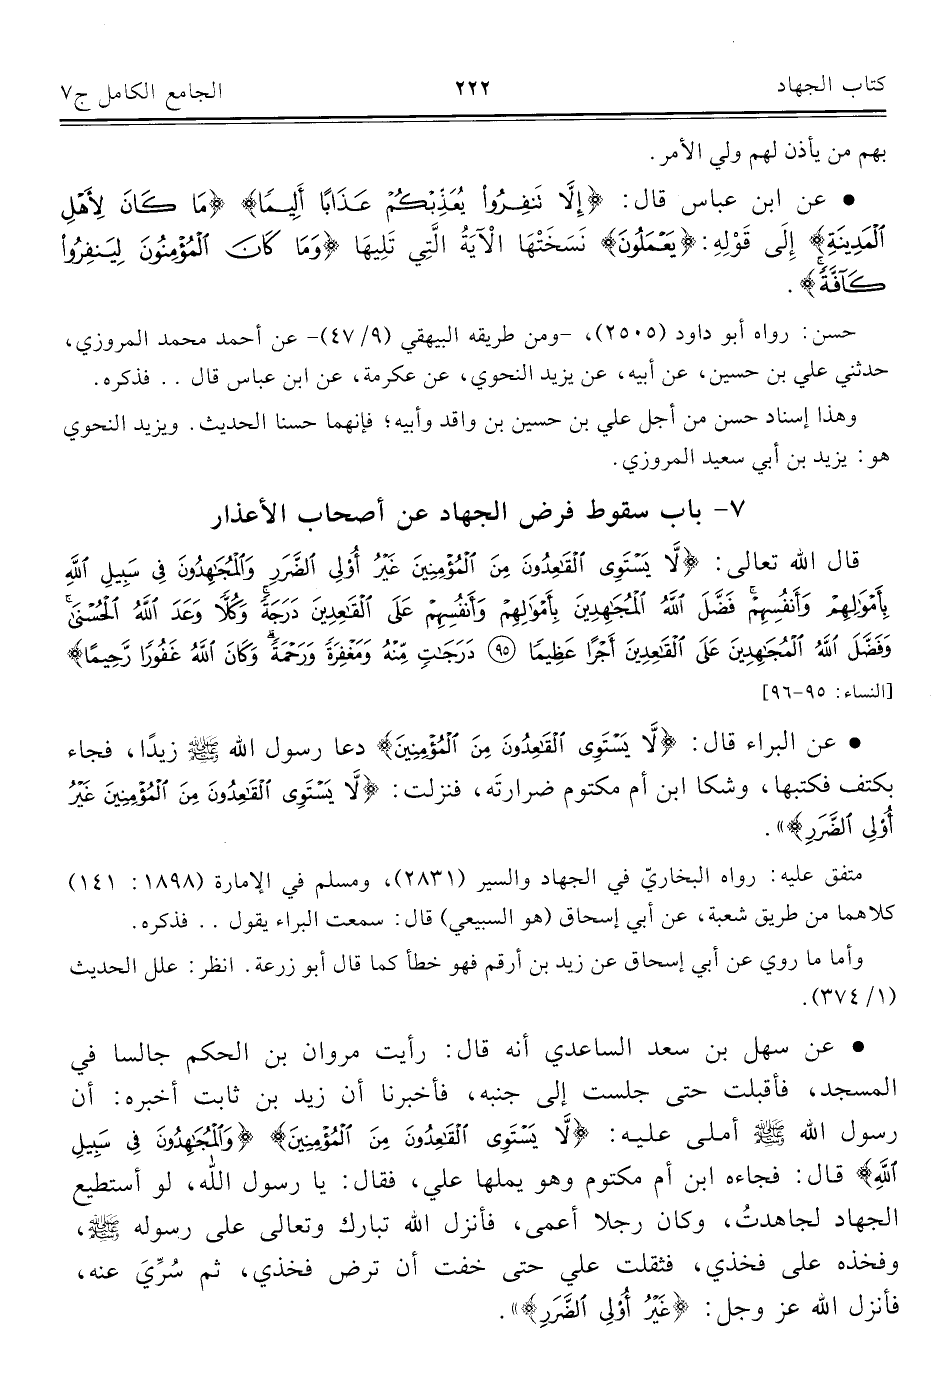 كتاب الجهاد ٢٢٢ الجامع الكامل ج٧
بهم من يأذن لهم ولي الأمر.
• عن ابن عباس قال: ﴿إِلَّا تَنفِرُوا۟ يُعَذِّبْكُمْ عَذَابًا أَلِيمًا﴾ ﴿مَا كَانَ لِأَهْلِ
ٱلْمَدِينَةِ﴾ إِلَى قَوْلِهِ: ﴿يَعْمَلُونَ﴾ نَسَخَتْهَا الْآيَةُ الَّتِي تَلِيهَا ﴿وَمَا كَانَ ٱلْمُؤْمِنُونَ لِيَنفِرُوا۟
كَآفَّةً﴾.
حسن: رواه أبو داود (٢٥٠٥)، -ومن طريقه البيهقي (٩/ ٤٧)- عن أحمد محمد المروزي،
حدثني علي بن حسين، عن أبيه، عن يزيد النحوي، عن عكرمة، عن ابن عباس قال .. فذكره.
وهذا إسناد حسن من أجل علي بن حسين بن واقد وأبيه؛ فإنهما حسنا الحديث. ويزيد النحوي
هو: يزيد بن أبي سعيد المروزي.
٧- باب سقوط فرض الجهاد عن أصحاب الأعذار
قال الله تعالى: ﴿لَّا يَسْتَوِى ٱلْقَٰعِدُونَ مِنَ ٱلْمُؤْمِنِينَ غَيْرُ أُو۟لِى ٱلضَّرَرِ وَٱلْمُجَٰهِدُونَ فِى سَبِيلِ ٱللَّهِ
بِأَمْوَٰلِهِمْ وَأَنفُسِهِمْ ۚ فَضَّلَ ٱللَّهُ ٱلْمُجَٰهِدِينَ بِأَمْوَٰلِهِمْ وَأَنفُسِهِمْ عَلَى ٱلْقَٰعِدِينَ دَرَجَةً ۚ وَكُلًّا وَعَدَ ٱللَّهُ ٱلْحُسْنَىٰ ۚ
وَفَضَّلَ ٱللَّهُ ٱلْمُجَٰهِدِينَ عَلَى ٱلْقَٰعِدِينَ أَجْرًا عَظِيمًا (٩٥) دَرَجَٰتٍ مِّنْهُ وَمَغْفِرَةً وَرَحْمَةً ۚ وَكَانَ ٱللَّهُ غَفُورًا رَّحِيمًا﴾
[النساء: ٩٥-٩٦]
• عن البراء قال: ﴿لَّا يَسْتَوِى ٱلْقَٰعِدُونَ مِنَ ٱلْمُؤْمِنِينَ﴾ دعا رسول الله ﷺ زيدًا، فجاء
بكتف فكتبها، وشكا ابن أم مكتوم ضرارتَه، فنزلت: ﴿لَّا يَسْتَوِى ٱلْقَٰعِدُونَ مِنَ ٱلْمُؤْمِنِينَ غَيْرُ
أُو۟لِى ٱلضَّرَرِ﴾».
متفق عليه: رواه البخاريّ في الجهاد والسير (٢٨٣١)، ومسلم في الإمارة (١٨٩٨: ١٤١)
كلاهما من طريق شعبة، عن أبي إسحاق (هو السبيعي) قال: سمعت البراء يقول .. فذكره.
وأما ما روي عن أبي إسحاق عن زيد بن أرقم فهو خطأ كما قال أبو زرعة. انظر: علل الحديث
(١/ ٣٧٤).
• عن سهل بن سعد الساعدي أنه قال: رأيت مروان بن الحكم جالسا في
المسجد، فأقبلت حتى جلست إلى جنبه، فأخبرنا أن زيد بن ثابت أخبره: أن
رسول الله ﷺ أملى عليه: ﴿لَّا يَسْتَوِى ٱلْقَٰعِدُونَ مِنَ ٱلْمُؤْمِنِينَ﴾ ﴿وَٱلْمُجَٰهِدُونَ فِى سَبِيلِ
ٱللَّهِ﴾ قال: فجاءه ابن أم مكتوم وهو يملها علي، فقال: يا رسول الله، لو أستطيع
الجهاد لجاهدتُ، وكان رجلا أعمى، فأنزل الله تبارك وتعالى على رسوله ﷺ،
وفخذه على فخذي، فثقلت علي حتى خفت أن ترض فخذي، ثم سُرِّيَ عنه،
فأنزل الله عز وجل: ﴿غَيْرُ أُو۟لِى ٱلضَّرَرِ﴾».